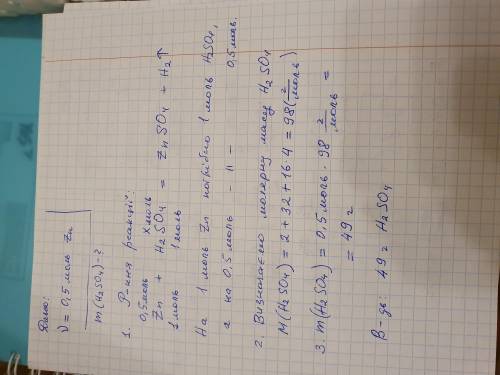 Дано:
ν = 0,5 моль Zn
m(H₂SO₄) - ?
1. Р-ння реакції:
0,5 моль x моль
Zn + H₂SO₄ = ZnSO₄ + H₂↑
1 моль 1 моль
На 1 моль Zn потрібно 1 моль H₂SO₄,
а на 0,5 моль - 11 - 0,5 моль.
2. Визначаємо молярну масу H₂SO₄
M(H₂SO₄) = 2 + 32 + 16·4 = 98 (г/моль)
3. m(H₂SO₄) = 0,5 моль · 98 г/моль =
= 49 г
В-дь: 49 г H₂SO₄